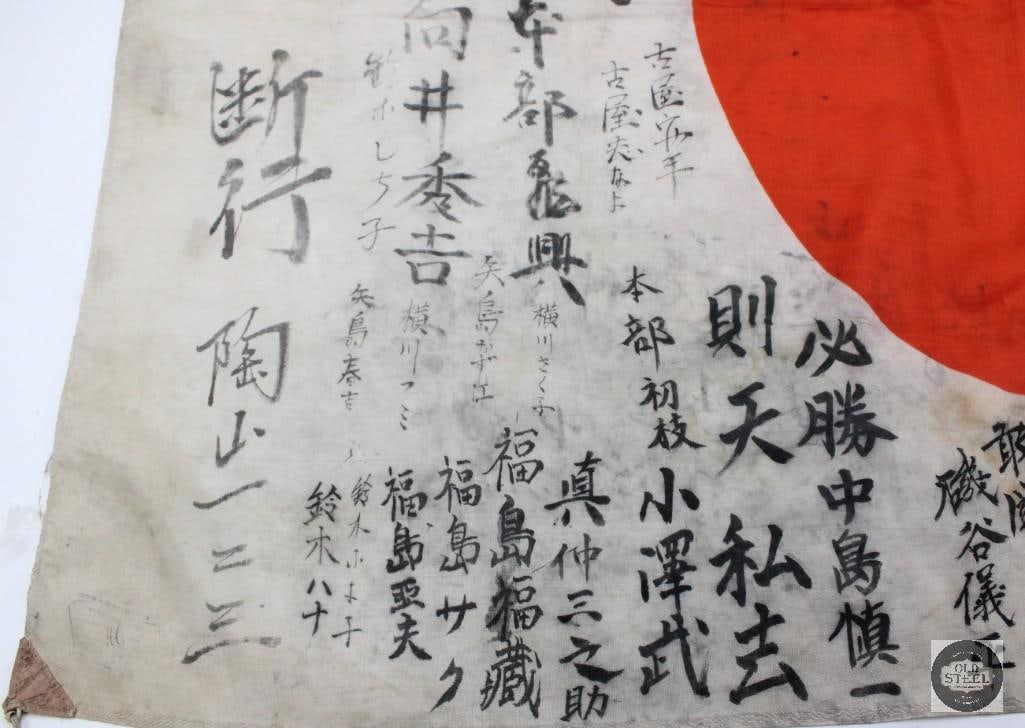 磯谷儀
必勝 中島慎一
則天 私去
小澤武
本部初枝
古屋
古屋
眞仲三之助
本部 興
横川さく子
福島福藏
矢島かず江
福島サク
向井秀吉
横川フミ
福島亜夫
鈴木しち子
矢島春吉
鈴木
鈴木ハナ
断行 陶山一二三
OLD STEEL